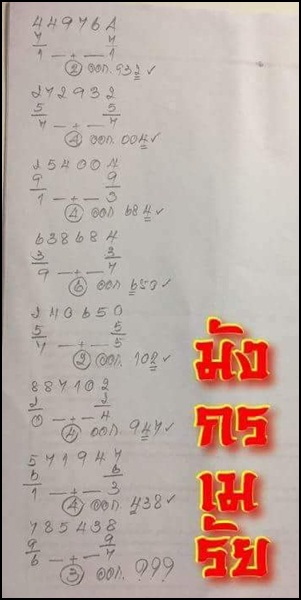 449764
7 7
1 – + – 1
2 ออก. 932 ✓
272932
5 5
7 – + – 7
4 ออก. 004 ✓
254004
9 9
1 – + – 3
4 ออก 684 ✓
638684
3 3
9 – + – 7
6 ออก 650 ✓
240650
5 5
7 – + – 5
2 ออก. 102 ✓
887102
2 2
0 – + – 4
4 ออก. 947 ✓
571947
6 6
1 – + – 3
4 ออก. 438 ✓
785438
9 9
6 – + – 7
3 ออก. ???
มัง
กร
เม
รัย